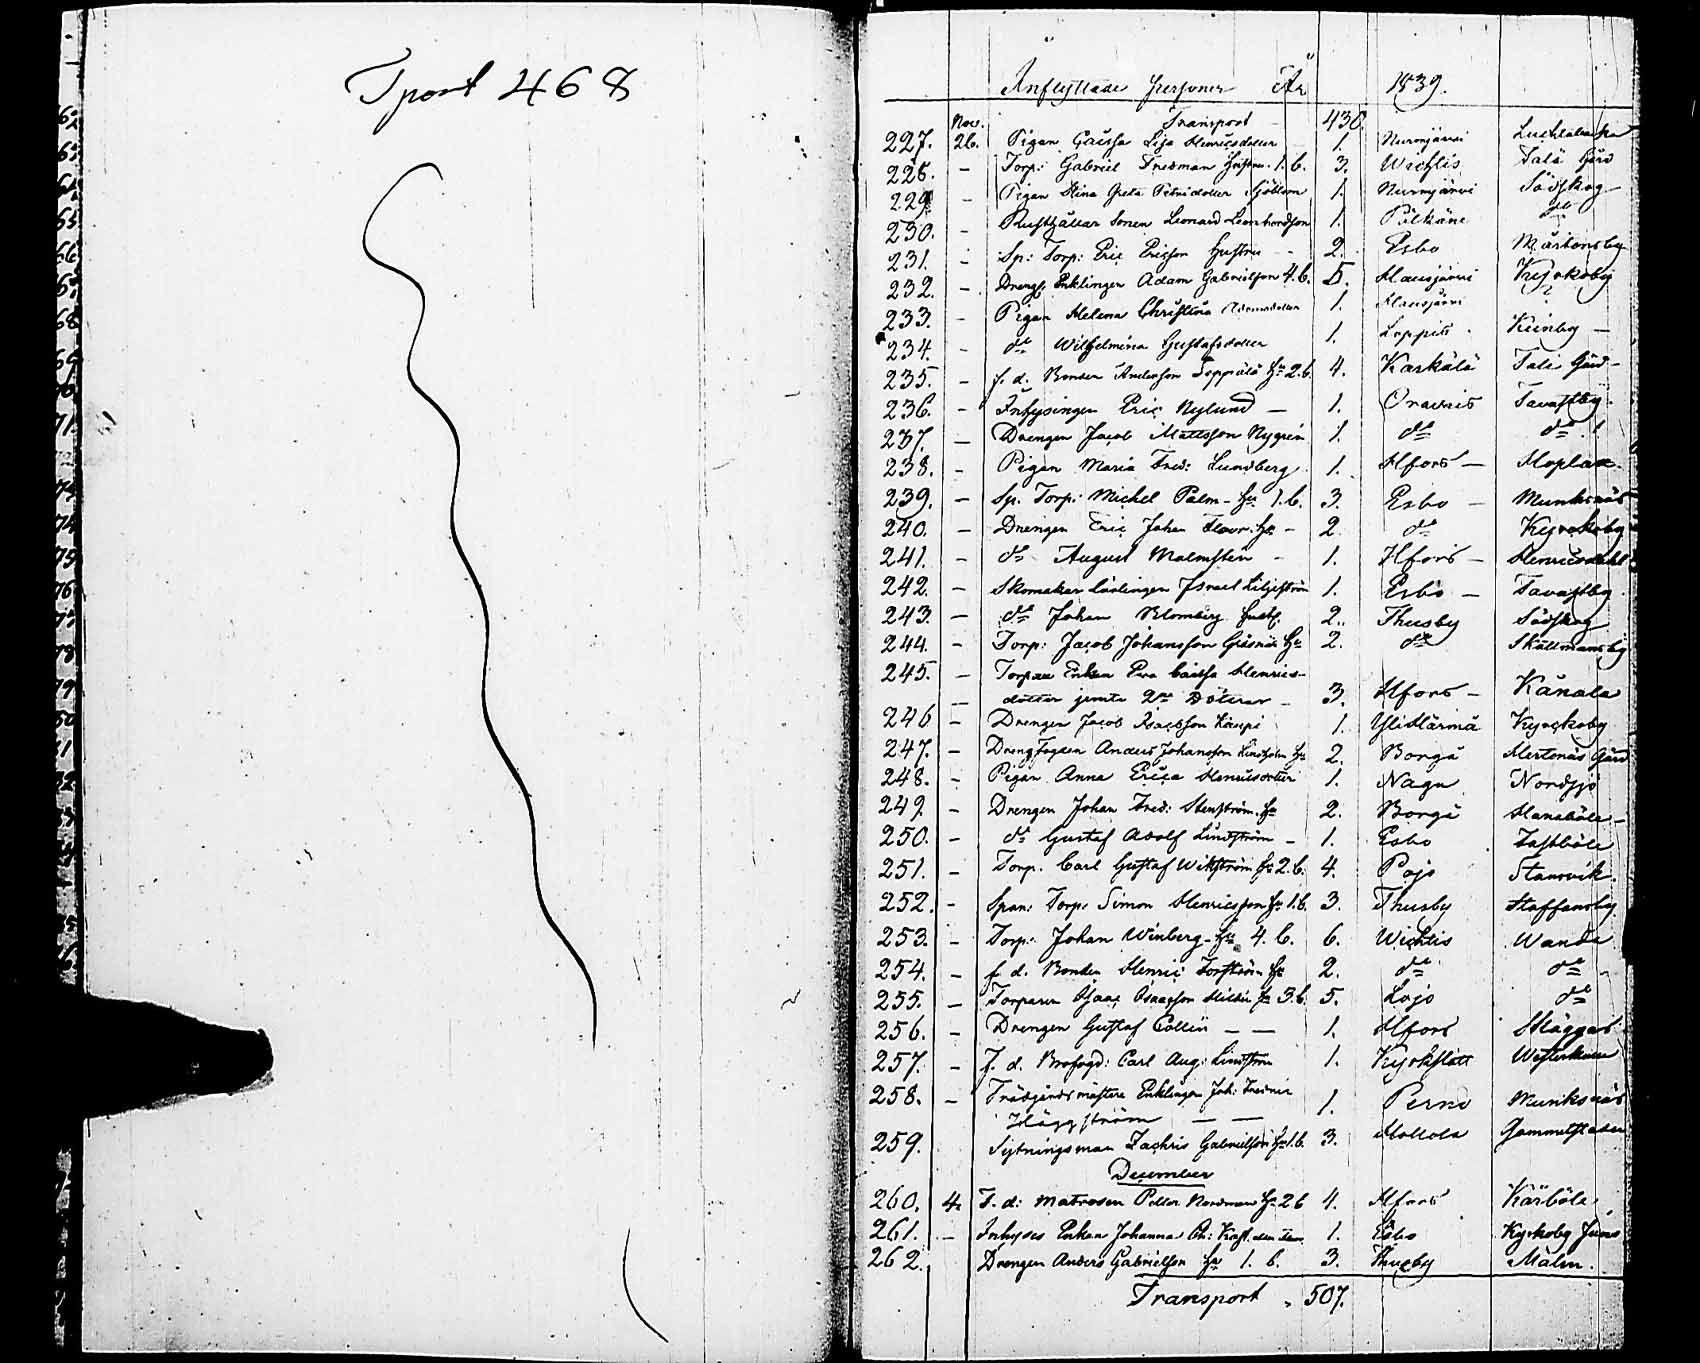 Tport 468
Inflyttade Personer År 1839.
Nov. Transport 430.
227. 26. Pigan Caisa Lisa Henricsdotter 1. Nurmijärvi
228. - Torp: Gabriel Fredman hustru 1. b. 3. Wichtis Tali Gård
229. - Pigan Stina Greta 1. Nurmijärvi Södskog
230. - Rusthållar Sonen Leonard 1. Pälkäne do
231. - Sp: Torp: Eric Ericsson hustru - 2. Esbo Mårtensby
232. - Dreng Enklingen Adam Gabrielsson 4. b. 5. Hausjärvi Kyrkoby
233. - Pigan Helena Christina 1. Hausjärvi
234. - do Wilhelmina Gustafsdotter 1. Loppis Kúnby -
235. - f. d. Bonden Andersson hu 2. b. 4. Karkälä Tali Gård -
236. - Inhysingen Eric Nylund - 1. Oravais Tavastby
237. - Drengen Jacob Mattsson Nygrén 1. do do
238. - Pigan Maria Fred: Lundberg 1. Hfors - Hoplax.
239. - Sp. Torp: Michel Palm - hu 1. b. 3. Esbo - Munksnäs
240. - Drengen Eric Johan hu - 2. do Kyrkoby
241. - do August Malmstén - 1. Hfors - Henricsdahl
242. - Skomakar Lärlingen Israel Liljeström 1. Esbo - Tavastby
243. - do Johan Blomberg hust. 2. Thusby Södskog
244. - Torp: Jacob Johansson hu 2. do Skattmansby
245. - Torpare Enkan Eva Caisa Henrics-
dotter jemte 2ne Döttrar - 3. Hfors - Kånala
246 - Drengen Jacob Isacsson 1. Kyrkoby
247. - Dreng Fogden Anders Johansson Lindholm hu 2. Borgå Mertenäs Gård
248. - Pigan Anna Erica Henricsdotter 1. Nagu Nordsjö
249. - Drengen Johan Fred: Stenström. hu 2. Borgå Hanaböle -
250. - do Gustaf Adolf Lindström - 1. Esbo Fastböle
251. - Torp. Carl Gustaf Wikström hu 2. b. 4. Pojo Stansvik.
252. - Span: Torp: Simon Henricsson hu 1. b. 3. Thusby Staffansby
253. - Torp: Johan Winberg - hu 4. b. 6. Wichtis Wanda
254. - f. d. Bonden Henric Forström hu 2. do do
255. - Torparen Isaac Isaacsson hu 3. b. 5. Lojo do
256. - Drengen Gustaf Collin - - 1. Hfors Skäggas
257. - f. d. Brofogd: Carl Aug: Lindström 1. Kyrkslätt Westerkulla
258. - Trädgårdsmästare Enklingen Joh: Fredric
Häggström - - 1. Perno Munksnäs
259. Sytningsman Zachris Gabrielsson hu 1. b. 3. Hollola Gammelstaden
December
260. 4. F. d: Matrosen Petter Nordman hu 2 b 4. Hfors Kårböle
261. - Inhyses Enkan Johanna 1. Esbo Kyrkoby
262. Drengen Anders Gabrielsson hu 1. b. 3. Thusby Malm.
Transport " 507.